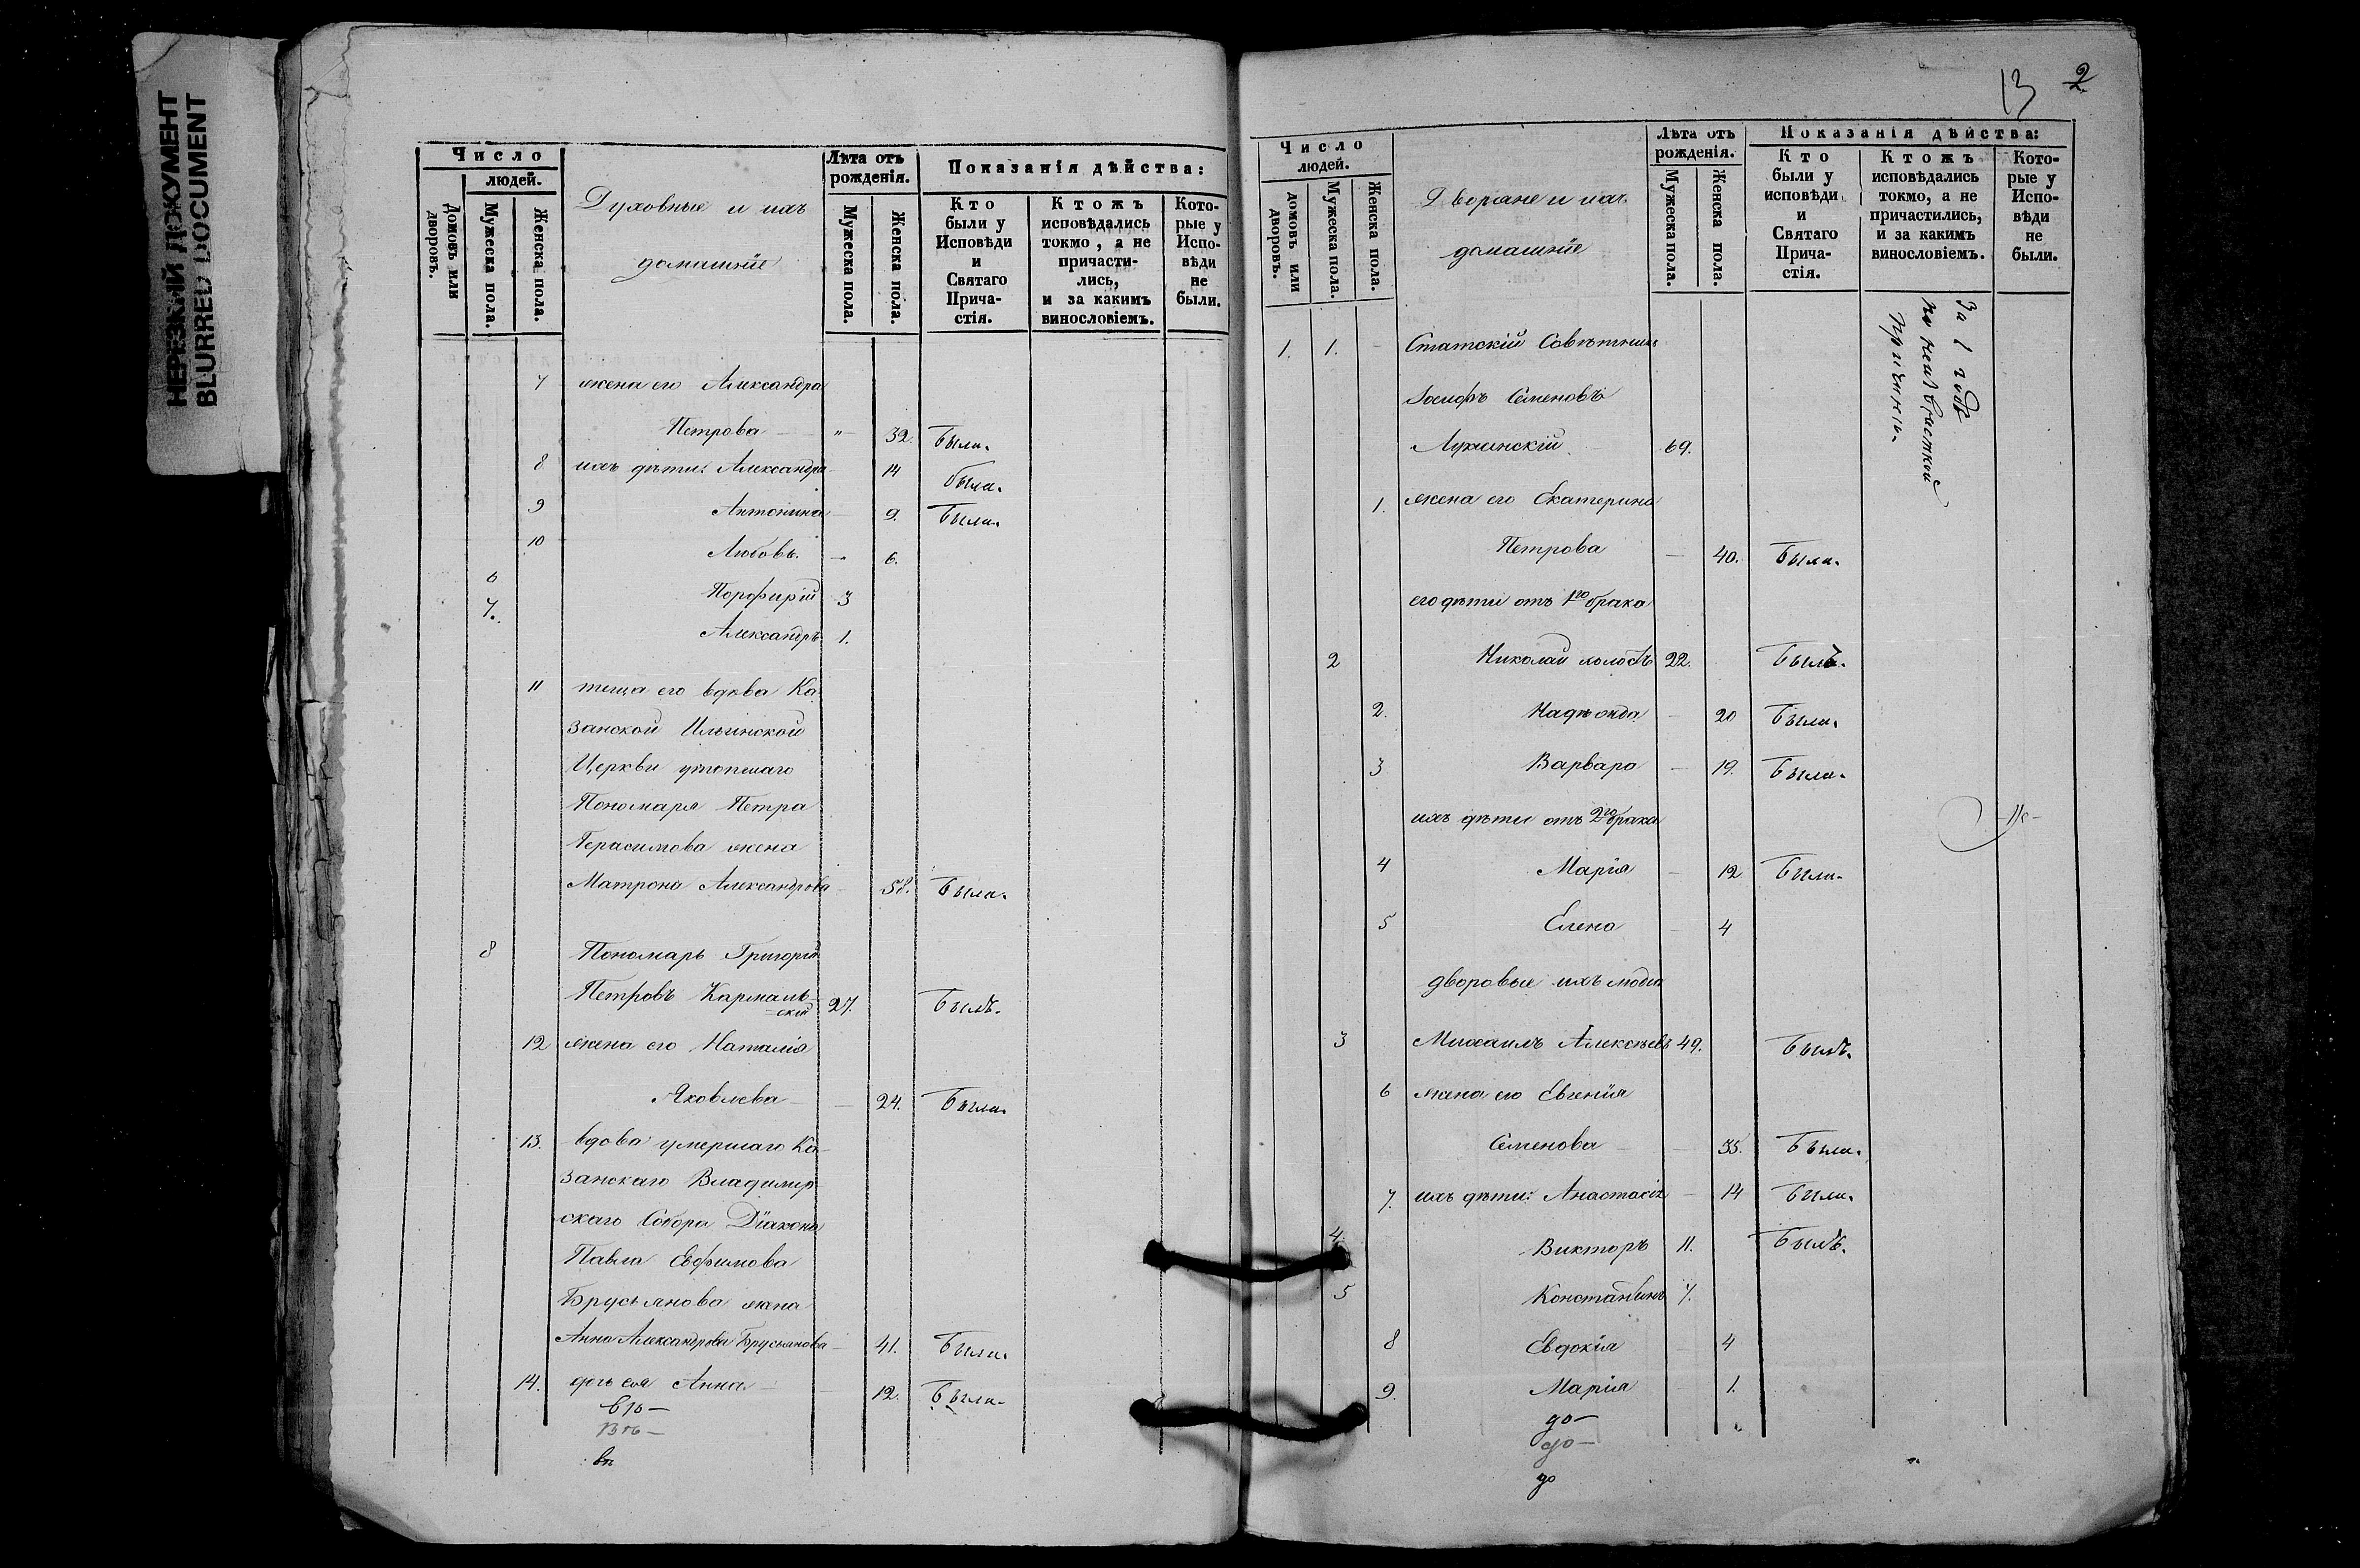 НЕРЕЗКИЙ ДОКУМЕНТ
BLURRED DOCUMENT
Число
людей.
Домовъ или дворовъ.
Мужеска пола.
Женска пола.
Духовные и ихъ
домашніе
Лѣта отъ рожденія.
Мужеска пола.
Женска пола.
Показанія дѣйства:
Кто были у Исповѣди и Святаго Прича-стія.
Ктожъ исповѣдались токмо, а не причасти-лись, и за какимъ винословіемъ.
Кото-рые у Испо-вѣди не были.
7 жена его Александра
Петрова — " 32. Была.
8 ихъ дѣти: Александра 14 была.
9 Антонина 9. Была.
10 Любовь. 6.
6 Порфирій 3
7. Александръ 1.
11 теща его вдова Ка
занской Ильинской
Церкви
Пономаря Петра
Герасимова жена
Матрона Александрова 58. Была.
8 Пономарь Григорій
Петровъ Кармаль-
скій 27. Былъ.
12 жена его Наталія
Яковлева 24. Была.
13. вдова умершаго Ка-
занскаго Владимір
скаго Собора Діакона
Павла Евфимова
Брусьянова жена
Анна Александрова Брусьянова 41. Была.
14. дочь ея Анна 12. Была.
13 2
Число
людей.
домовъ или дворовъ.
Мужеска пола.
Женска пола.
Дворяне и ихъ
домашніе
Лѣта отъ рожденія.
Мужеска пола.
Женска пола.
Показанія дѣйства:
Кто были у исповѣди и Святаго Прича-стія.
Ктожъ исповѣдались токмо, а не причастились, и за какимъ винословіемъ.
Кото-рые у Испо-вѣди не были.
1. 1. Статскій Совѣтникъ
Іосифъ Семеновъ
69.
1. жена его Екатерина
Петрова — 40. Была.
его дѣти отъ 1го брака
2 Николай холостъ 22. Былъ.
2. Надежда 20 Была.
3 Варвара 19. Была.
ихъ дѣти отъ 2го брака
4 Марія 12 Была.
5 Елена 4
дворовые ихъ люди
3 Михаилъ Алексѣевъ 49. Былъ.
6 жена его Евгенія
Семенова 35. Была.
7. ихъ дѣти: Анастасія 14 Была.
4. Викторъ 11. Былъ.
5 Константинъ 7.
8 Евдокія 4
9. Марія 1.
до —
до —
до